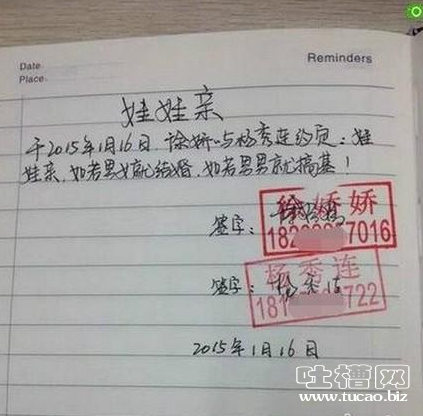 Date
Place
Reminders
娃娃亲
于2015年1月16日 徐娇与杨秀连约定：娃
娃亲、如若男女就结婚、如若男男就搞基！
签字：
徐娇娇
18 7016
签字：杨秀连
杨秀连
181 722
2015年1月16日
吐槽网
www.tucao.biz